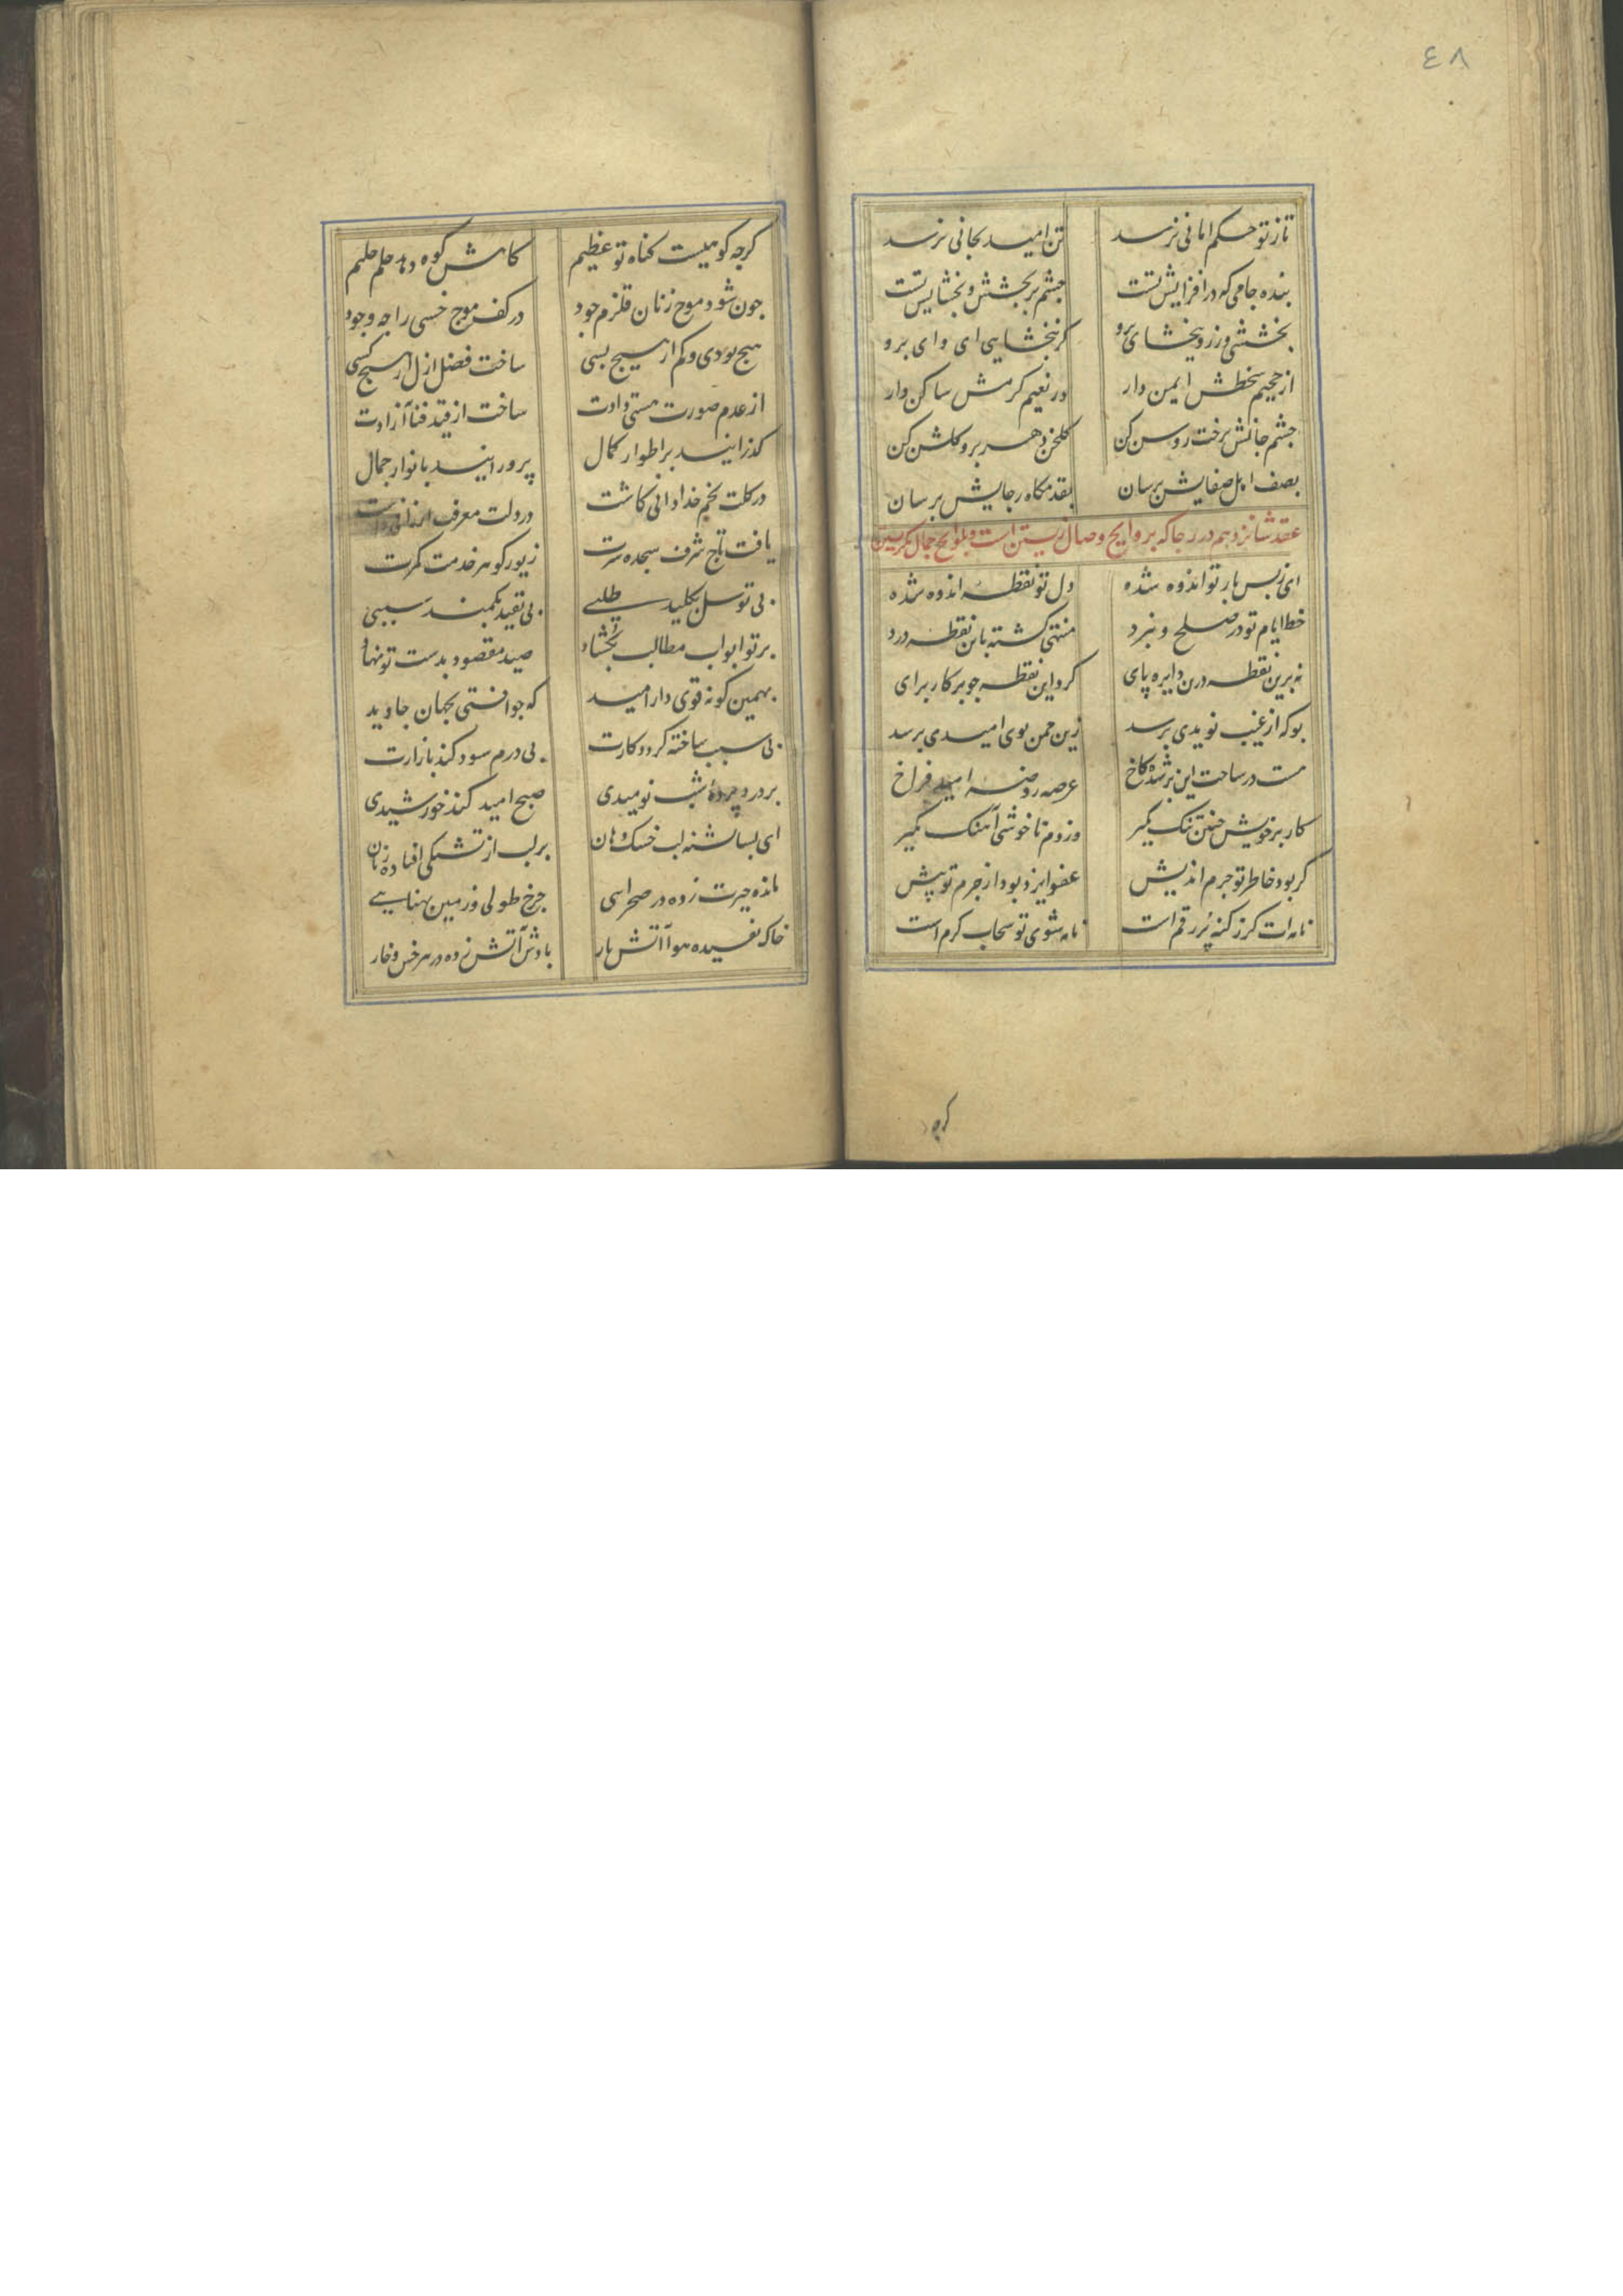 ٤٨
تا ز تو حکم امانی نرسد تن امید بجانی نرسد
بنده جامی که در افزایش تست جشم بر بخشش و بخشایش تست
بخششی ورز و ببخشای برو کر نبخشایی ای وای برو
از جحیم سخطش ایمن دار در نعیم کرمش ساکن دار
جشم جانش برخت روشن کن کلخن دهر برو کلشن کن
بصف اهل صفایش برسان بقدمکاه رجایش برسان
عقد شانزدهم در رجا که بروایح وصال زیستن است و بلوایح جمال نکریستن
ای ز بس بار تو انبوه شده دل تو نقطه اندوه شده
خط ایام تو در صلح و نبرد منتهی کشته باین نقطه درد
نه برین نقطه درین دایره پای کرد این نقطه جو برکار برای
بو که از غیب نویدی برسد زین جمن بوی امیدی برسد
هست در ساحت این بر شده کاخ عرصه روضه امید فراخ
کار بر خویش جنین تنک مکیر وز دم ناخوشی آهنک مکیر
کر بود خاطر تو جرم اندیش عفو ایزد بود از جرم تو پیش
نامه ات کر ز کنه پر رقم است نامه شوی تو سحاب کرم است
کرچه
کرجه کوهیست کناه تو عظیم کاهش کوه دهد حلم حلیم
جون شود موج زنان قلزم جود در کف موج خسی را جه وجود
هیج بودی و کم از هیج بسی ساخت فضل ازل از هیج کسی
از عدم صورت هستی دادت ساخت از قید فنا آزادت
کذرانید بر اطوار کمال پرورانید بانوار جمال
در کلت تخم خدادانی کاشت در دلت معرف ارزانی داشت
یافت تاج شرف سجده سرت زیور کوهر خدمت کمرت
بی توسل بکلید طلبی بی تقید بکمند سببی
بر تو ابواب مطالب بکشاد صید مقصود بدست تو نهاد
بهمین کونه قوی دار امید که جو افتی بجهان جاوید
بی سبب ساخته کردد کارت بی درم سود کند بازارت
بر درد پرده شب نومیدی صبح امید کند خورشیدی
ای بسا تشنه لب خشک دهان بر لب از تشنکی افتاده زبان
مانده حیرت زده در صحرایی جرخ طولی و زمین پهنایی
خاک تفسیده هوا آتش بار بادش آتش زده در هر خس و خار